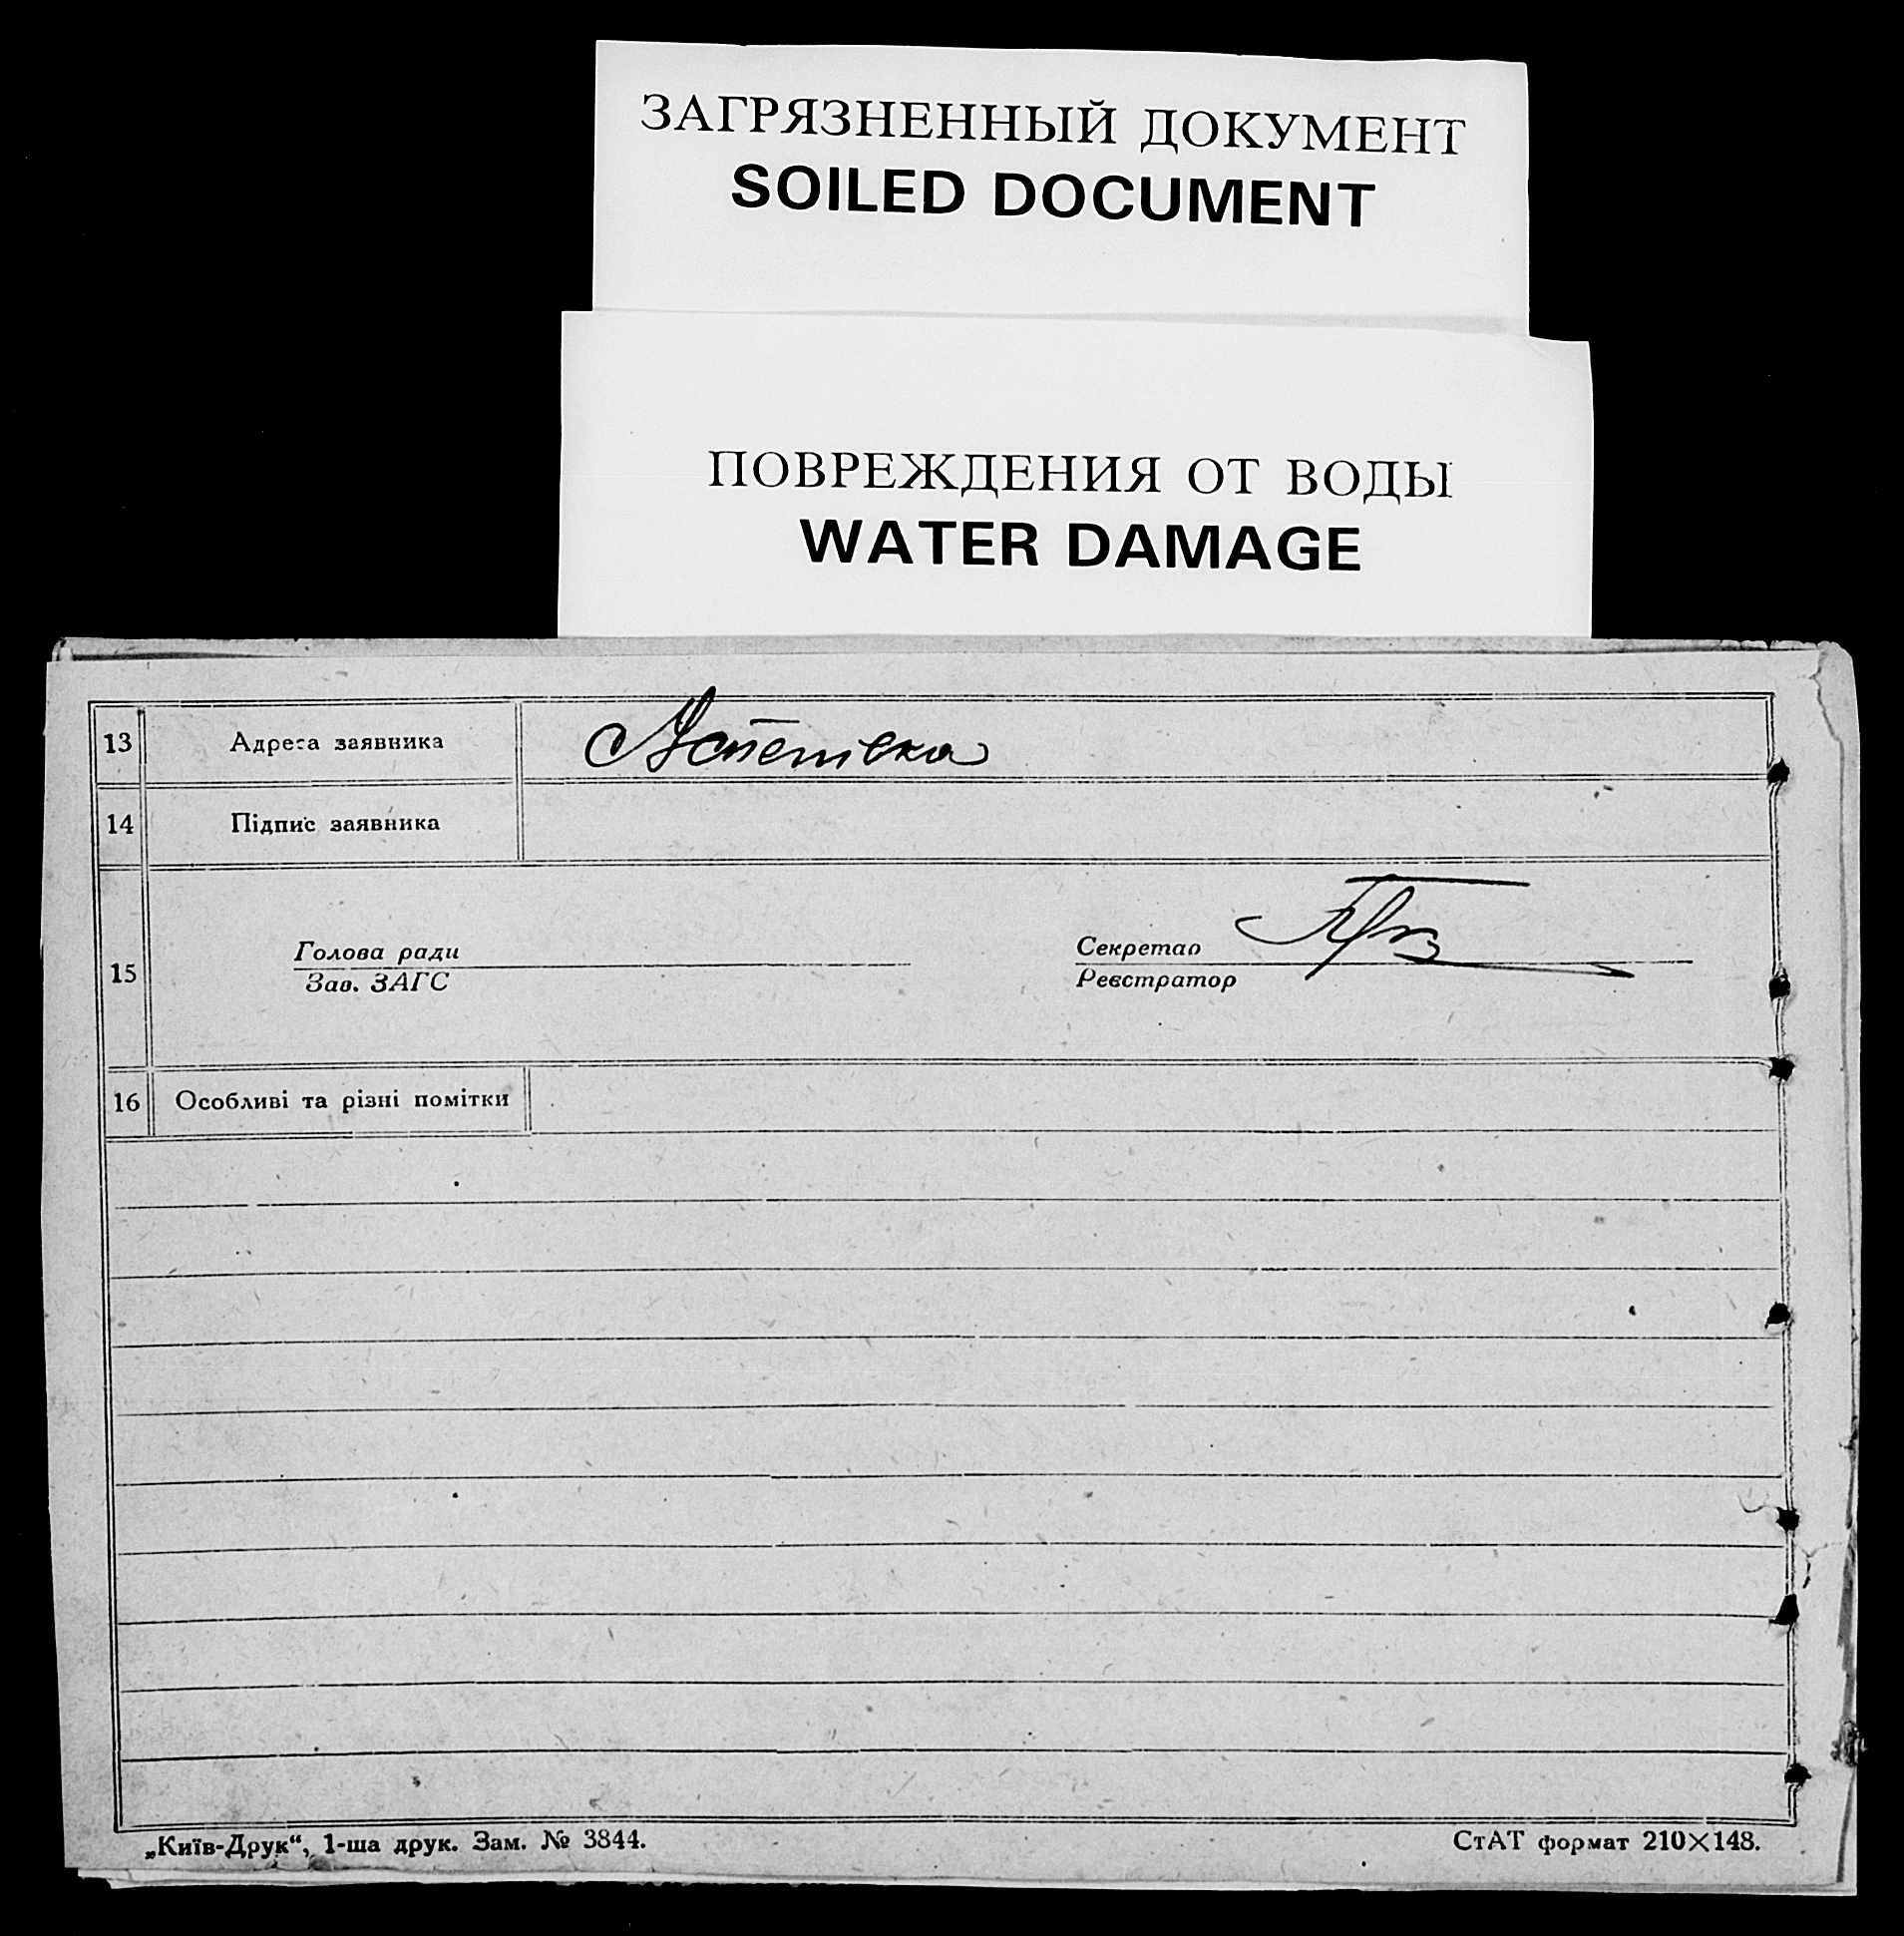 ЗАГРЯЗНЕННЫЙ ДОКУМЕНТ
SOILED DOCUMENT
ПОВРЕЖДЕНИЯ ОТ ВОДЫ
WATER DAMAGE
13 Адреса заявника
14 Підпис заявника
15
Голова ради
Зав. ЗАГС
Секретар
Реєстратор
16 Особливі та різні помітки
„Київ-Друк“, 1-ша друк. Зам. № 3844.
СтАТ формат 210×148.